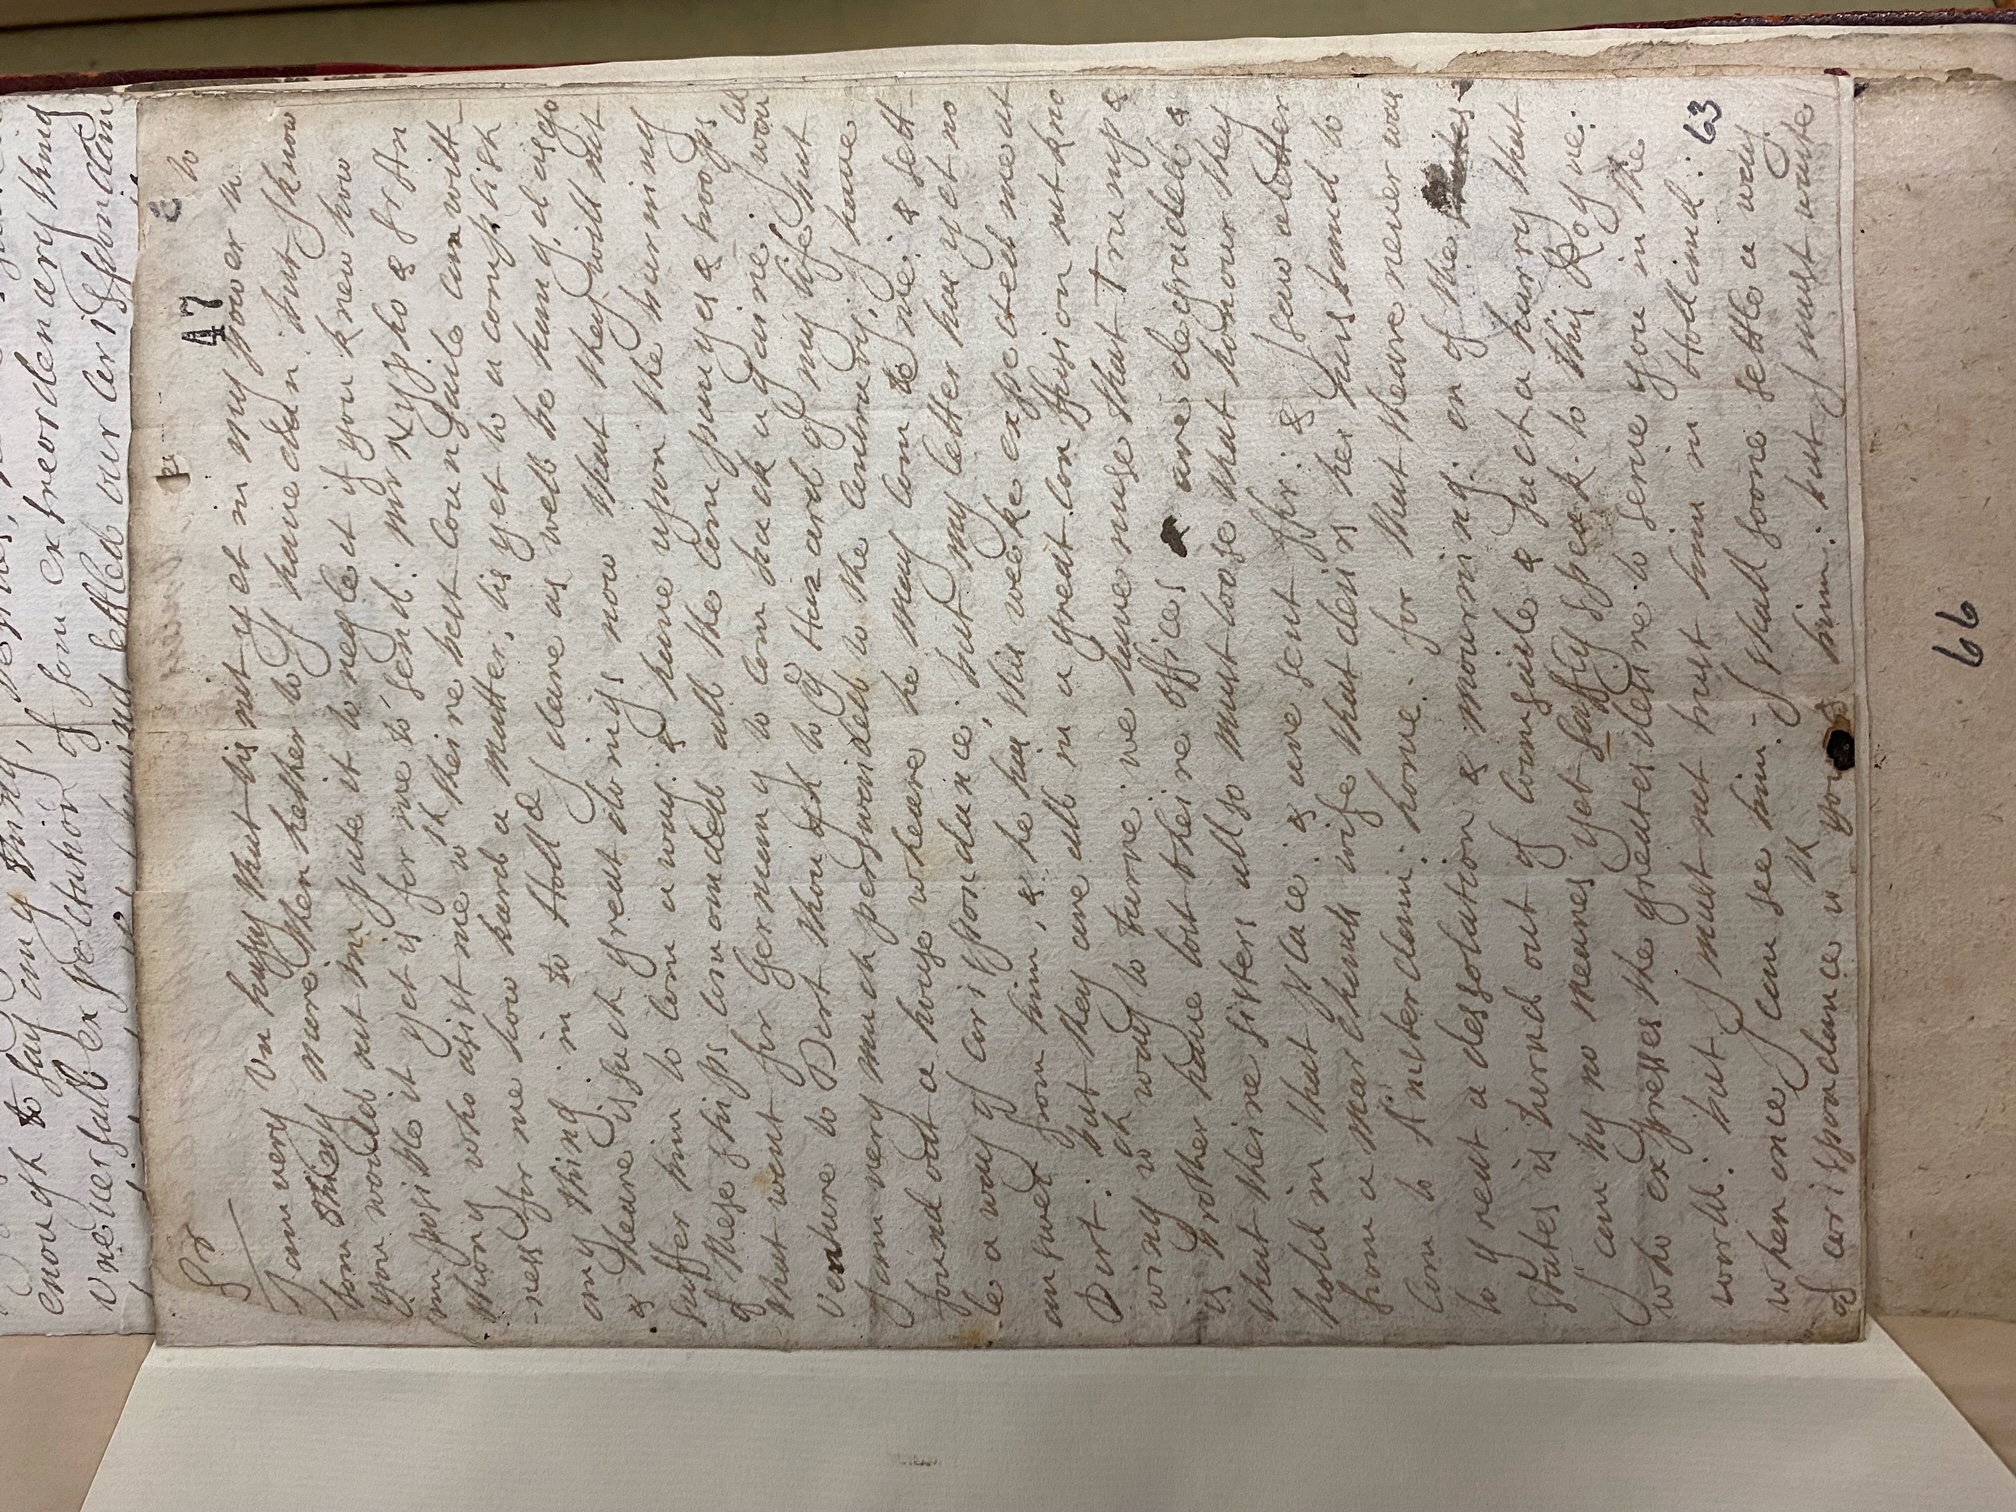 enough to say any thing,
of som extreordenary thing
unerfall expectation
and settled our corisponden
47
Sr
I am very Un hapy that tis not yet in my power to
som thing more then hether to I have don but I know
you would not impute it to neglect if you knew how
imposible it yet is for me to send: mr Nypho & Sr An
thony who asist me wth theire best Counsaile can wit
ness for me how hard a matter tis yet to acomplish
any thing in to Holld I dare as well be hang'd as go
& theare is such great doings now that they will not
suffer him to com away: & have upon the hearing
of these ships comanded all the companyes & troops
that went for Germany to com back againe: I would
Venture to Dort though to ye Hazard of my life but
I am very much perswaided to the contrary; I have
found out a house wheare he may com to me: & sett
le a way of corispondance; but my letter has yet no
answer from him, & he has this weeke expected me at
Dort: but they are all in a great confusion not kno
wing wch way to turne: we have nuse that Trump &
is brother have lost theire offices & are degraided &
that theire sisters allso must loose that honour they
hold in that place: & are sent for: & I saw a letter
from a marchants wife that desirs her husband to
com to Amsterdam: home: for that theare never was
so great a dessolution & mourning: on of the
States is turnd out of Counsaile & such a hurry that
I can by no meanes yet safly speak to this Rogue:
who expresses the greatest desire to serve you in the
world: but I must not trust him in Holland:
when once I can see him: I shall soone settle a way
of corispondance wth you & him: but I must waite
63
66